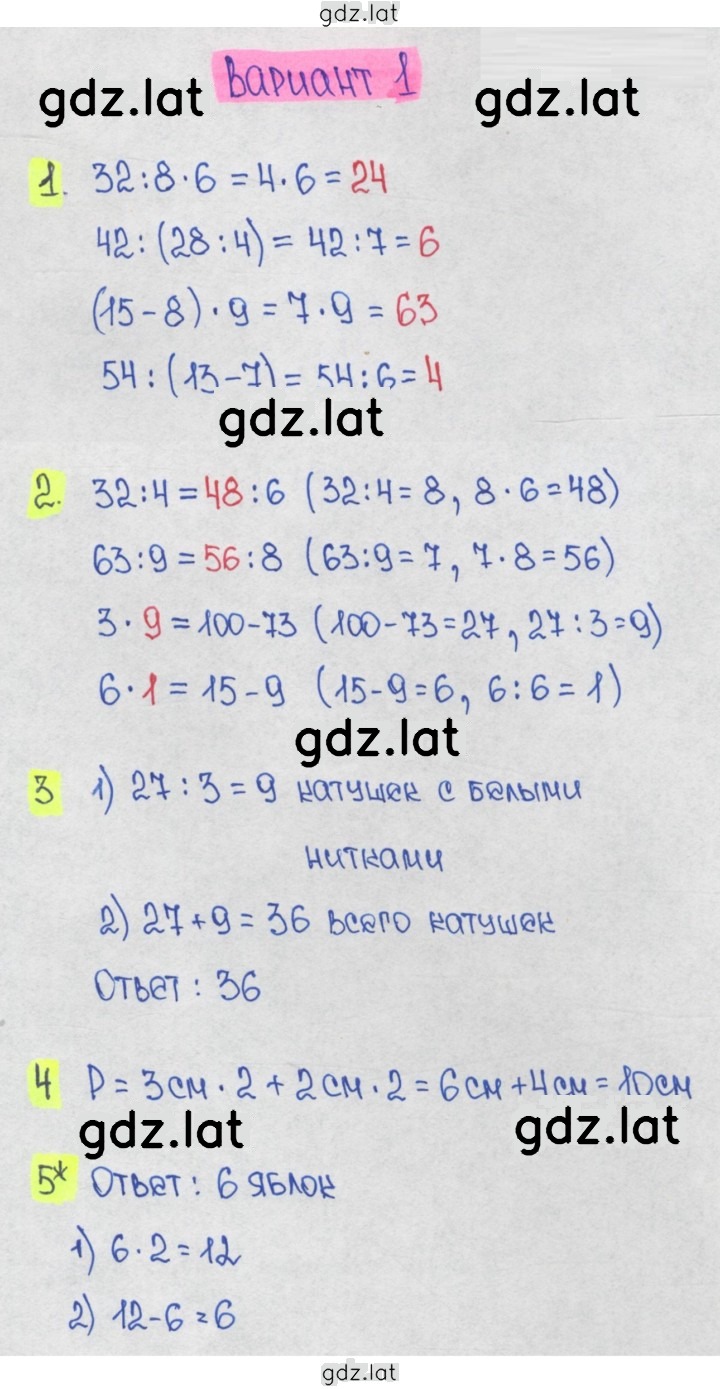 gdz.lat
Вариант 1
gdz.lat gdz.lat
1. 32:8·6 = 4·6 = 24
42:(28:4) = 42:7 = 6
(15-8)·9 = 7·9 = 63
54:(13-7) = 54:6 = 4
gdz.lat
2. 32:4 = 48:6 (32:4 = 8, 8·6 = 48)
63:9 = 56:8 (63:9 = 7, 7·8 = 56)
3·9 = 100-73 (100-73 = 27, 27:3 = 9)
6·1 = 15-9 (15-9 = 6, 6:6 = 1)
gdz.lat
3 1) 27:3 = 9 катушек с белыми
нитками
2) 27+9 = 36 всего катушек
Ответ: 36
4 P = 3см·2 + 2см·2 = 6см + 4см = 10см
gdz.lat gdz.lat
5* Ответ: 6 яблок
1) 6·2 = 12
2) 12-6 = 6
gdz.lat